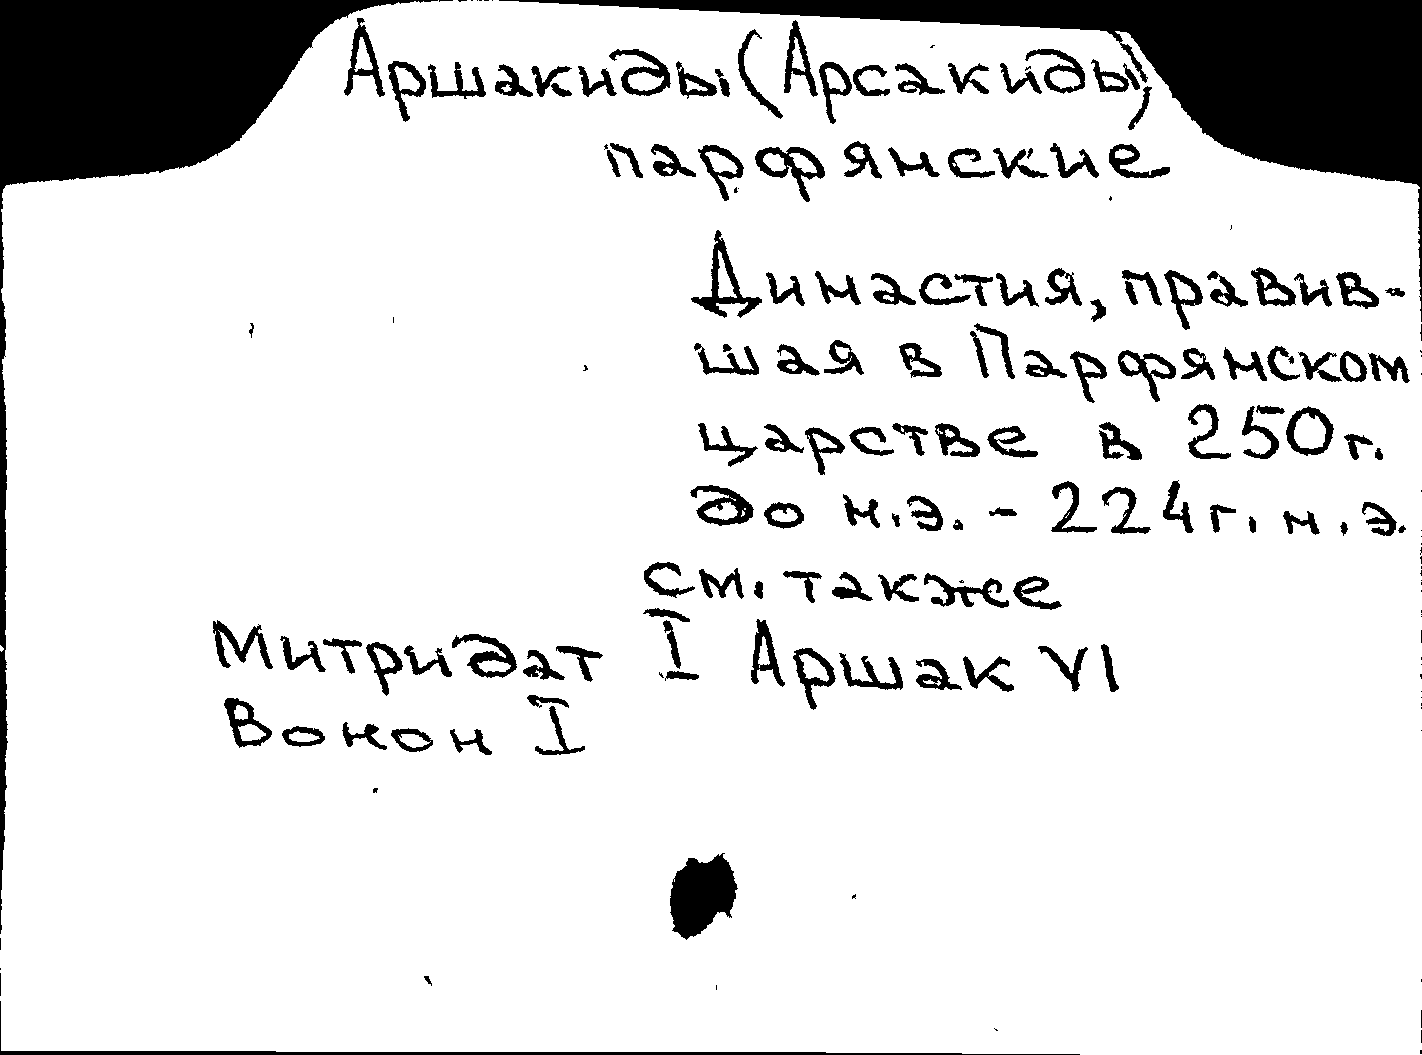 Аршакиды (Арсакиды)
парфянские
Династия, правив-
шая в Парфянском
царстве в 250 г.
до н.э. - 224 г. н.э.
см. также
Митридат I Аршак VI
Вонон I